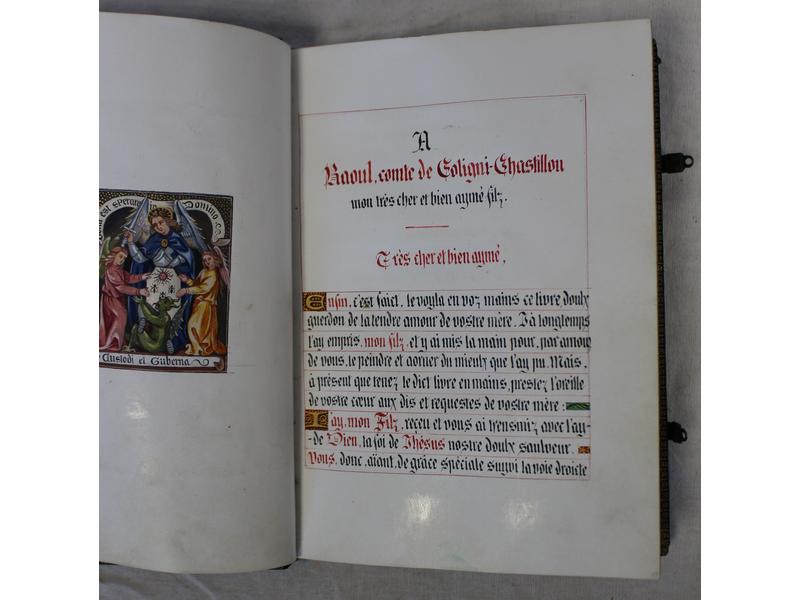 est sperare in Domino
Custodi et Guberna
A
Raoul, comte de Coligni-Chastillon
mon très cher et bien aymé filz.
Très cher et bien aymé,
Enfin, c'est faict, le voyla en voz mains ce livre doulx
guerdon de la tendre amour de vostre mère. Jà longtemps
l'ay empris, mon filz, et y ai mis la main pour, par amour
de vous, le peindre et aorner du mieulx que l'ay pu. Mais,
à présent que tenez le dict livre en mains, prestez l'oreille
de vostre cœur aux dis et requestes de vostre mère.
J'ay, mon Filz, receu et vous ai transmiz avec l'ay-
-de Dieu, la foi de Jhésus nostre doulx sauveur.
Vous, donc, aïant, de grâce spéciale suyvi la voie droicte